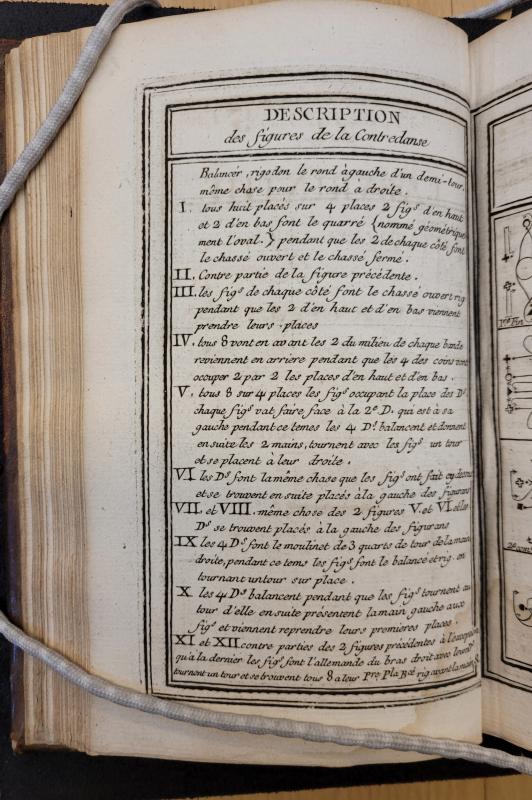 DESCRIPTION
des figures de la Contredanse
Balancér, rigodon le rond à gauche d'un demi-tour,
même chase pour le rond à droite.
I. tous huit placés sur 4 places 2 figs d'en haut
et 2 d'en bas font le quarré {nommé géométrique
ment l'oval.} pendant que les 2 de chaque côté font
le chassé ouvert et le chassé fermé.
II. Contre partie de la figure précédente.
III. les figs de chaque côté font le chassé ouvert rig
pendant que les 2 d'en haut et d'en bas viennent
prendre leurs places
IV. tous 8 vont en avant les 2 du milieu de chaque bande
reviennent en arriere pendant que les 4 des coins vont
occuper 2 par 2 les places d'en haut et d'en bas.
V. tous 8 sur 4 places les figs occupant la place des Ds
chaque figs vat faire face à la 2e D. qui est à sa
gauche pendant ce temes les 4 Ds balancent et donnent
en suite les 2 mains, tournent avec les figs un tour
et se placent à leur droite.
VI. les Ds font la même chase que les figs ont fait cy dessus
et se trouvent en suite placés à la gauche des figurans
VII. et VIII. même chose des 2 figures V. et VI. et les
Ds se trouvent placés à la gauche des figurans
IX les 4 Ds font le moulinet de 3 quarts de tour de la main
droite, pendant ce tems les figs font le balancé et rig. en
tournant un tour sur place.
X. les 4 Ds balancent pendant que les figs tournent au
tour d'elle en suite présentent la main gauche aux
figs et viennent reprendre leurs premieres places.
XI et XII. contre parties des 2 figures précédentes à l'exception
qu'a la dernier les figs font l'allemande du bras droit avec leurs Ds
tournent un tour et se trouvent tous 8 a leur Pre Pla Bal rig avant la main &